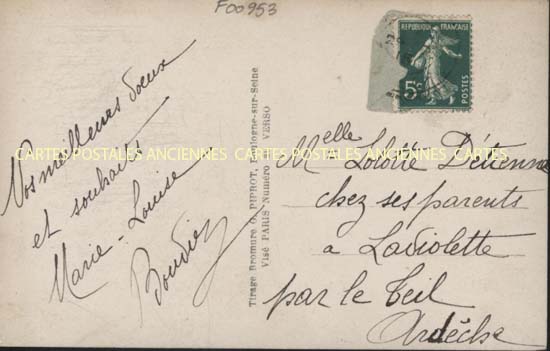 F00953
RÉPUBLIQUE FRANÇAISE
5c
POSTES
Vos meilleurs vœux
et souhaits
Marie-Louise
CARTES POSTALES ANCIENNES CARTES POSTALES ANCIENNES CARTES
Tirage Bromure G. PIPROT, Boulogne-sur-Seine
Visé PARIS Numéro VERSO
Melle Détienne
chez ses parents
a Laviolette
par le Teil
Ardèche